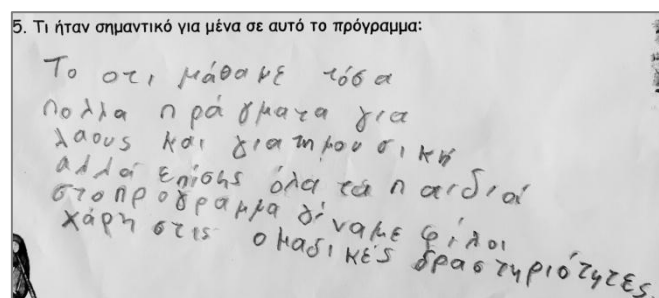 5. Τι ήταν σημαντικό για μένα σε αυτό το πρόγραμμα:
Το οτι μάθαμε τόσα
πολλα πράγματα για
λαους και για τη μουσική
αλλά επίσης όλα τα παιδιά
στο προγραμμα γίναμε φίλοι
χάρη στις ομαδικές δραστηριότητες.